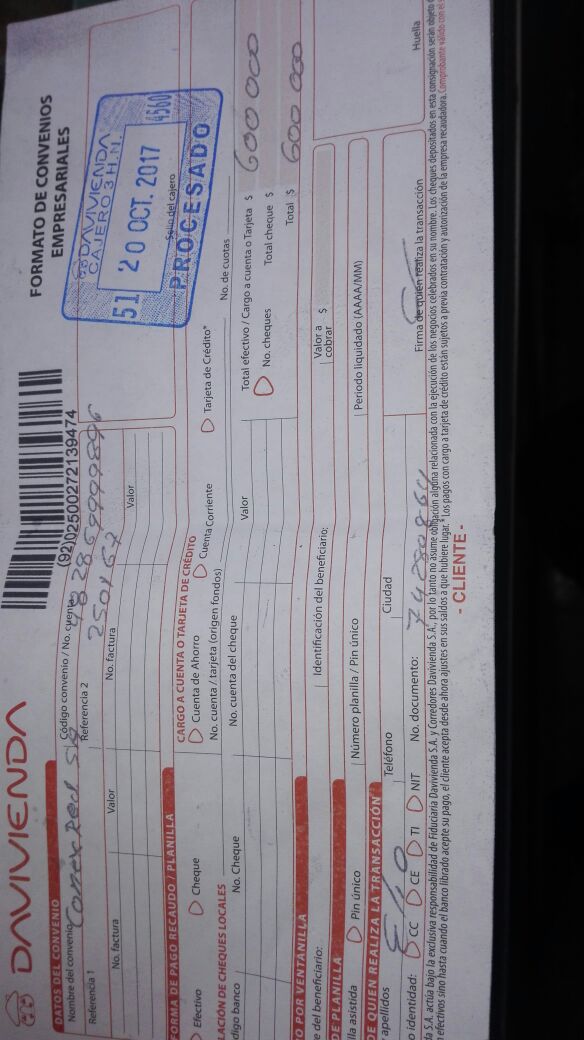 DAVIVIENDA
FORMATO DE CONVENIOS
EMPRESARIALES
(92)02500272139474
DATOS DEL CONVENIO
Nombre del convenio Conexred SA
Código convenio / No. cuenta
Referencia 1
Referencia 2 250167
No. factura
Valor
No. factura
Valor
DAVIVIENDA
CAJERO 3 H.N.
51 20 OCT. 2017 4560
Sello del cajero
PROCESADO
FORMA DE PAGO RECAUDO / PLANILLA
Efectivo
Cheque
CARGO A CUENTA O TARJETA DE CRÉDITO
Cuenta de Ahorro
Cuenta Corriente
Tarjeta de Crédito*
No. cuenta / tarjeta (origen fondos)
No. de cuotas
LACIÓN DE CHEQUES LOCALES
digo banco
No. Cheque
No. cuenta del cheque
Valor
Total efectivo / Cargo a cuenta o Tarjeta $ 600 000
No. cheques
Total cheque $
Total $ 600 000
O POR VENTANILLA
e del beneficiario:
Identificación del beneficiario:
Valor a
cobrar $
DE PLANILLA
lla asistida
Pin único
Número planilla / Pin único
Periodo liquidado (AAAA/MM)
DE QUIEN REALIZA LA TRANSACCIÓN
apellidos
Teléfono
Ciudad
Firma de quien realiza la transacción
Huella
o identidad:
CC
CE
TI
NIT
No. documento: 74280864
da S.A. actúa bajo la exclusiva responsabilidad de Fiduciaria Davivienda S.A. y Corredores Davivienda S.A., por lo tanto no asume obligación alguna relacionada con la ejecución de los negocios celebrados en su nombre. Los cheques depositados en esta consignación serán objeto
n efectivos sino hasta cuando el banco librado acepte su pago, el cliente acepta desde ahora ajustes en sus saldos a que hubiere lugar. *Los pagos con cargo a tarjeta de crédito están sujetos a previa contratación y autorización de la empresa recaudadora. Comprobante válido con el
- CLIENTE -